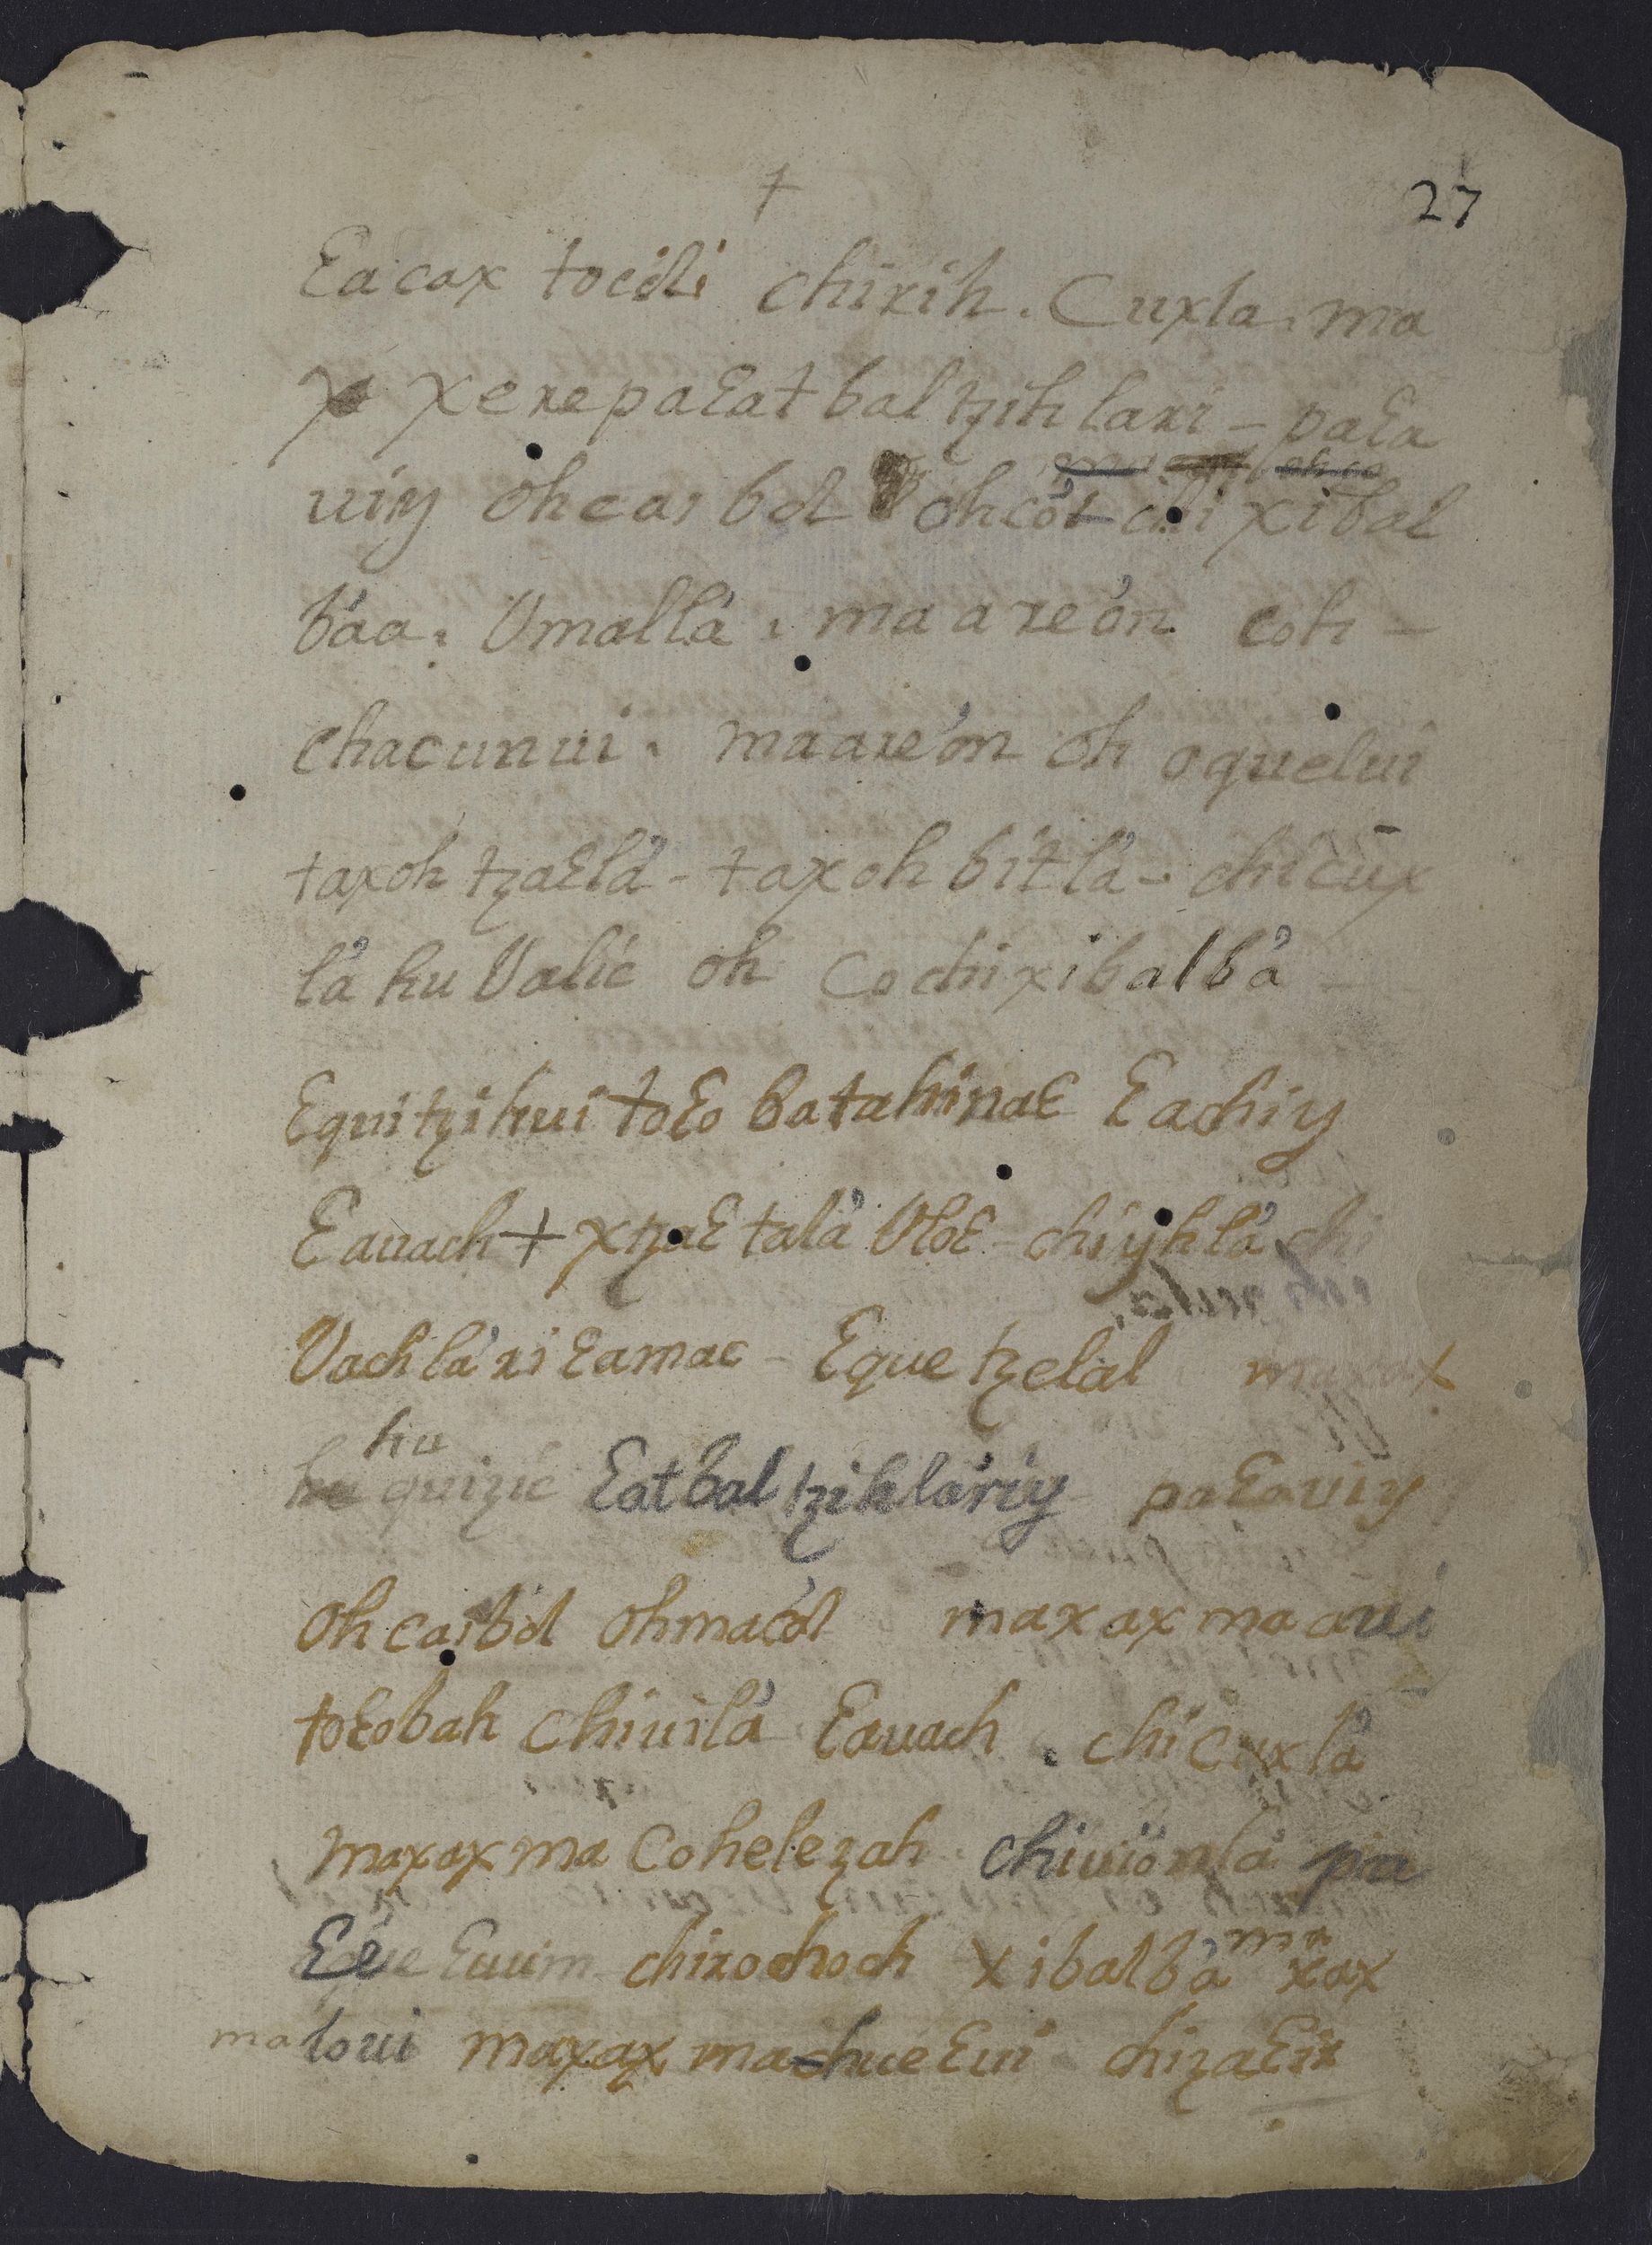 +
27
Ɛacax tocoli chirih. Cuxla. ma
xerepaƐat bal tzih lari - paƐa
uiy oh cai bol oh cot chi xibal
báa. Vmallá. ma areón coh -
chacunui. maareón oh oquelui
taxoh tzaƐlá - taxoh bítlá - chicúx
lá hu Valic oh co chixibalbá
Ɛquitzihui toƐo batahinaƐ Ɛachiy
Ɛauach + xtzaƐ talá VloƐ - chiyhlá chi
Vachlá ri Ɛamac - Ɛque tzelal maxax
hu
quizic Ɛatbal tzihláriy paƐauiy
oh caibol ohmacól maxax ma aui
toƐobah chiuilá Ɛauach . chicuxlá
maxax ma cohelezah . chiuiónlá pa
Ɛuum chirochoch xibalbá ma xax
maloui maxax machueƐui chizaƐir